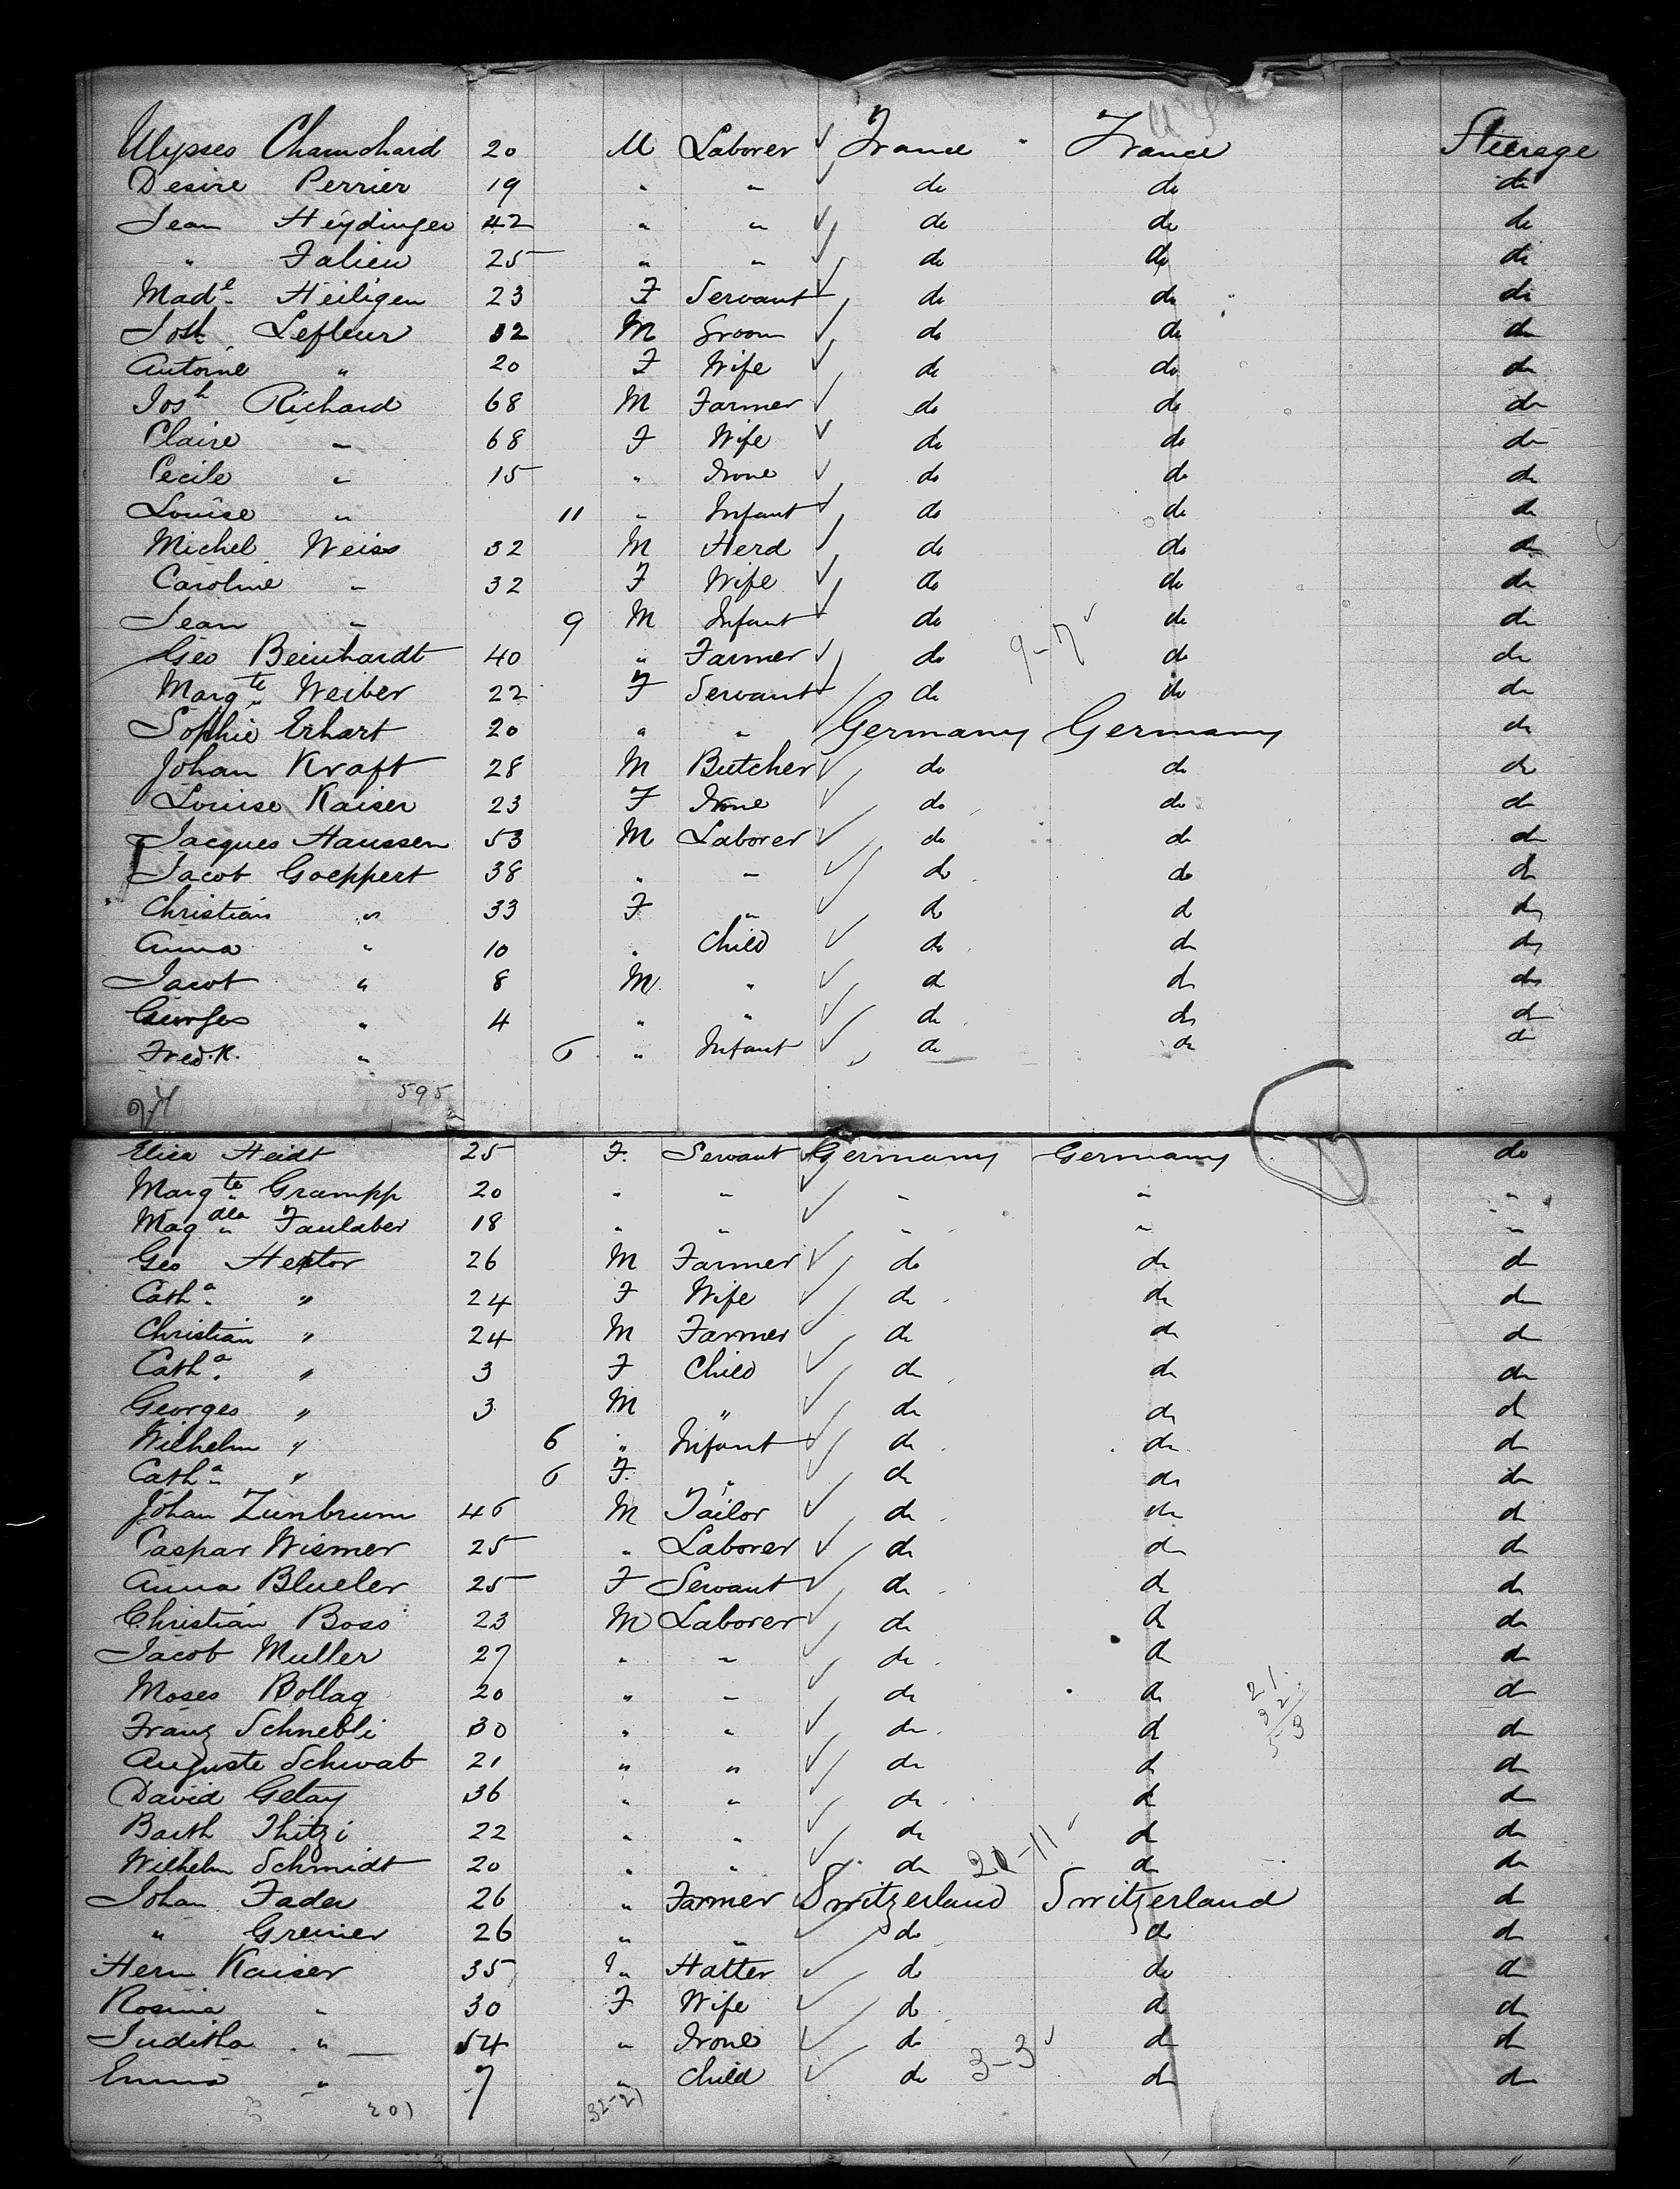 Ulysses Chamchard 20 M Laborer ✓ France " France Steerage
Desire Perrier 19 " " ✓ do do do
Jean Heydinger 42 " " ✓ do do do
" Falieu 25 " " ✓ do do do
Made Heiligen 23 F Servant ✓ do do do
Josh Lefleur 32 M Groom ✓ do do do
Antoine " 20 F Wife ✓ do do do
Josh Richard 68 M Farmer ✓ do do do
Claire " 68 F Wife ✓ do do do
Cecile " 15 " None ✓ do do do
Louise " 11 " Infant ✓ do do do
Michel Weiss 32 M Herd ✓ do do do
Caroline " 32 F Wife ✓ do do do
Jean " 9 M Infant ✓ do do do
Geo Beinhardt 40 " Farmer ✓ do 9-7 ✓ do do
Margte Weiber 22 F Servant ✓ do do do
Sophie Erhart 20 " " ✓ Germany Germany do
Johan Kraft 28 M Butcher ✓ do do do
Louise Kaiser 23 F None ✓ do do do
Jacques Haussen 53 M Laborer ✓ do do do
Jacob Goeppert 38 " " ✓ do do do
Christian " 33 F " ✓ do do do
Anna " 10 " Child ✓ do do do
Jacob " 8 M " ✓ do do do
Georges " 4 " " ✓ do do do
Fred.k. " 6 " Infant ✓ do do do
595
Elisa Heidt 25 F. Servant ✓ Germany Germany do
Margte Grampp 20 " " ✓ " " "
Magdla Faulaber 18 " " ✓ " " "
Geo Hector 26 M Farmer ✓ do do do
Catha " 24 F Wife ✓ do do do
Christian " 24 M Farmer ✓ do do do
Catha " 3 F Child ✓ do do do
Georges " 3 M " ✓ do do do
Wilhelm " 6 " Infant ✓ do do do
Catha " 6 F. " ✓ do do do
Johan Zumbrum 46 M Tailor ✓ do do do
Caspar Wismer 25 " Laborer ✓ do do do
Anna Blueler 25 F Servant ✓ do do do
Christian Boss 23 M Laborer ✓ do do do
Jacob Muller 27 " " ✓ do do do
Moses Bollag 20 " " ✓ do do 21 do
Franz Schnebli 30 " " ✓ do do 32 53 do
Auguste Schwab 21 " " ✓ do do do
David Getay 36 " " ✓ do do do
Barth Thitzi 22 " " ✓ do do do
Wilhelm Schmidt 20 " " ✓ do 21-11 ✓ do do
Johan Fader 26 " Farmer Switzerland Switzerland do
" Greiner 26 " " ✓ do do do
Herm Kaiser 35 " Hatter ✓ do do do
Rosina " 30 F Wife ✓ do do do
Juditha " 54 " None ✓ do do do
Emma " 7 " Child ✓ do 3-3 ✓ do do
32-21